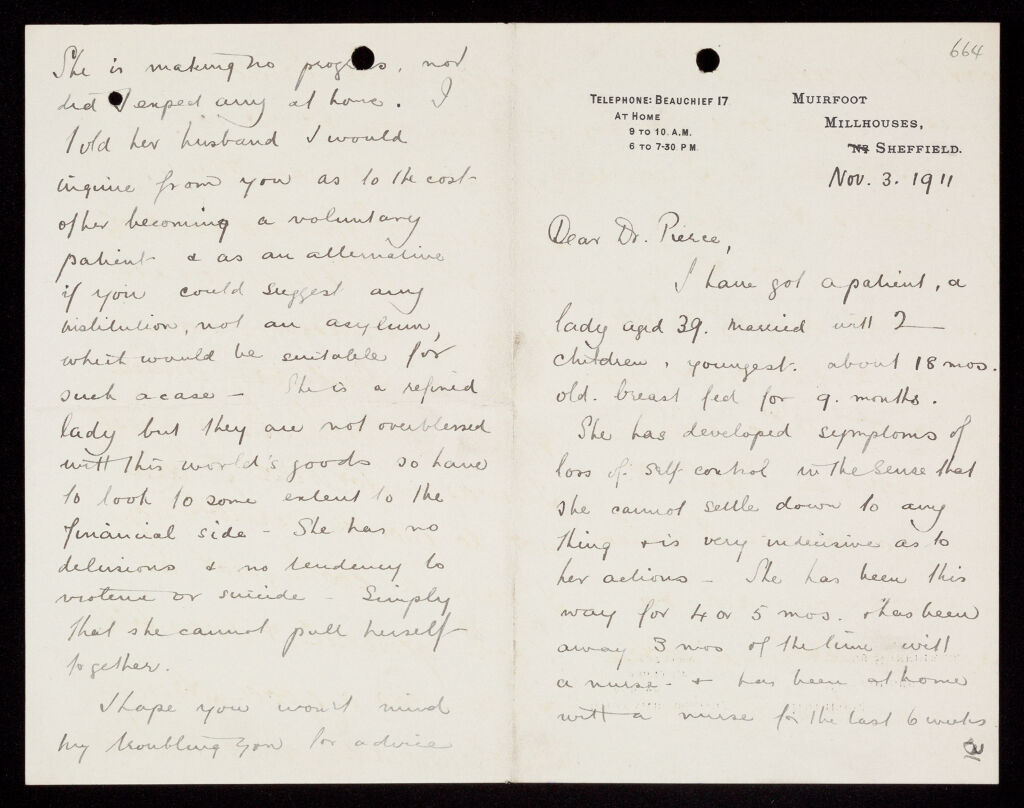 664
TELEPHONE: BEAUCHIEF 17
AT HOME
9 TO 10. A.M.
6 TO 7-30 P M.
MUIRFOOT
MILLHOUSES,
NR SHEFFIELD.
Nov. 3. 1911
Dear Dr. Pierce,
I have got a patient, a
lady aged 39. married with 2
children, youngest. about 18 mos.
old. breast fed for 9. months.
She has developed symptoms of
loss of self control in the sense that
she cannot settle down to any
thing & is very indecisive as to
her actions - She has been this
way for 4 or 5 mos. & has been
away 3 mos of the time with
a nurse - & has been at home
with a nurse for the last 6 weeks
She is making no progress, nor
did I expect any at home. I
told her husband I would
inquire from you as to the cost
of her becoming a voluntary
patient & as an alternative
if you could suggest any
institution, not an asylum,
which would be suitable for
such a case - She is a refined
lady but they are not overblessed
with this world's goods so have
to look to some extent to the
financial side - She has no
delusions & no tendency to
violence or suicide - Simply
that she cannot pull herself
together.
I hope you won't mind
my troubling you for advice